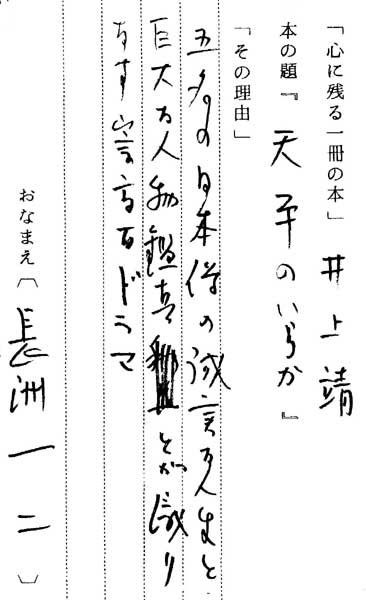 「心に残る一冊の本」 井上靖
本の題『天平のいらか』
「その理由」
五名の日本僧の誠実な人生と
巨大な人物鑑真とが織り
なす崇高なドラマ
おなまえ〔長洲一二〕